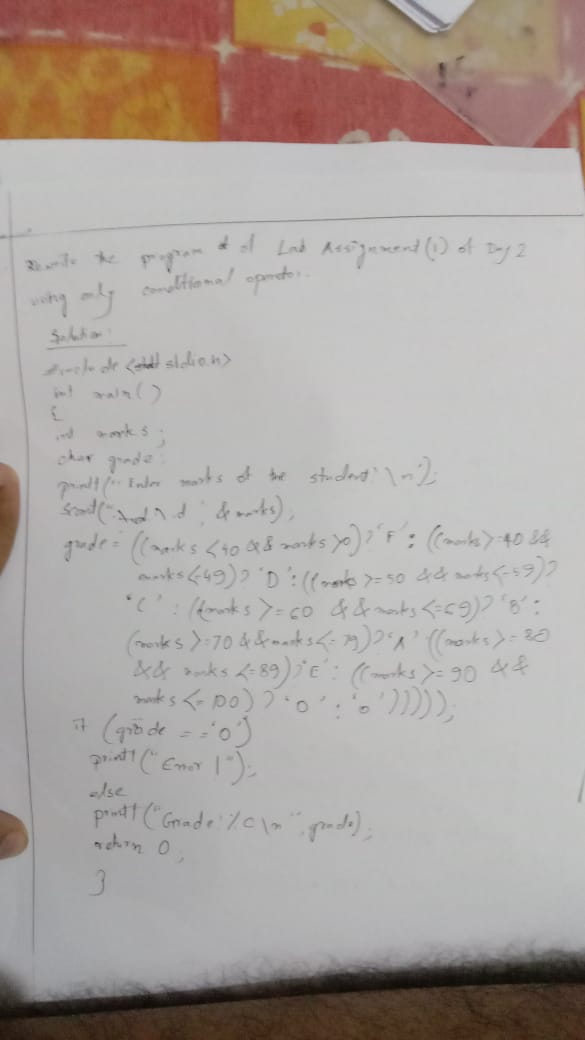 Rewrite the program of Lab Assignment (1) of Day 2
using only conditional operator.
Solution:
#include <stdio.h>
int main()
{
int marks;
char grade;
printf("Enter marks of the student: \n");
scanf("%d", &marks);
grade = ((marks <40 && marks >0)?'F': ((marks>=40 &&
marks<=49)? 'D':((marks >=50 && marks<=59)?
'C' : ((marks >=60 && marks<=69)? 'B':
(marks >=70 && marks<=79)?'A' ((marks>=80
&& marks <=89)?'E': ((marks>=90 &&
marks <=100)? 'O' : '0'))))));
if (grade =='0')
printf("Error !");
else
printf("Grade: %c\n", grade);
return 0;
}